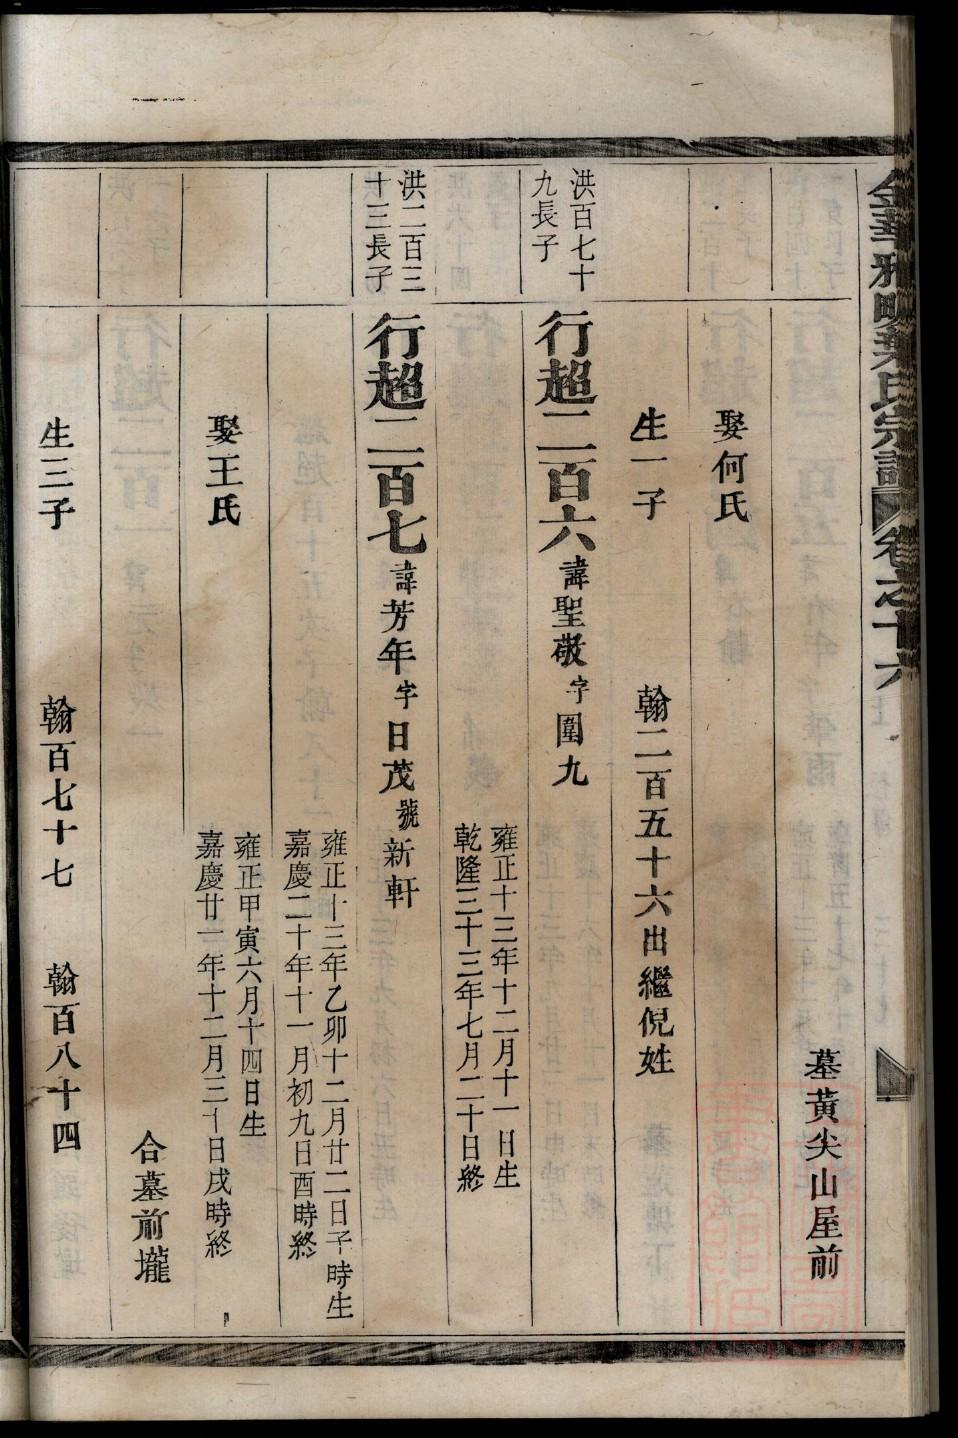 金華雅畈葉氏宗譜 卷之十六
墓黃尖山屋前
娶何氏
生一子 翰二百五十六出繼倪姓
洪百七十
九長子
行超二百六 諱聖敬 字圍九
雍正十三年十二月十一日生
乾隆三十三年七月二十日終
洪二百三
十三長子
行超二百七 諱芳年 字日茂 號新軒
雍正十三年乙卯十二月廿二日子時生
嘉慶二十年十一月初九日酉時終
娶王氏
雍正甲寅六月十四日生
嘉慶廿一年十二月三十日戌時終
合墓前壠
生三子 翰百七十七 翰百八十四